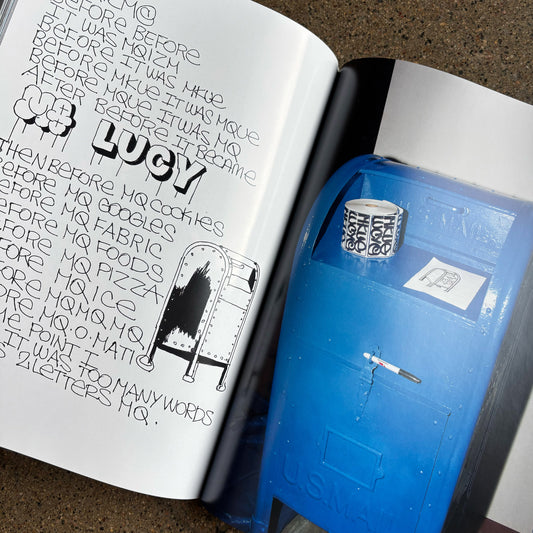 BEFORE BEFORE
BEFORE IT WAS MQIZM
BEFORE IT WAS MKUE
BEFORE MKUE IT WAS MQUE
AFTER MQUE IT WAS MQ
BEFORE IT BECAME
MQ LUCY
THEN BEFORE MQ COOKIES
BEFORE MQ GOOGLES
BEFORE MQ FABRIC
BEFORE MQ FOODS
BEFORE MQ PIZZA
MQ ICE
MQ.MQ.MQ.
MQ.O.MATI
POINT I
IT WAS TOO MANY WORDS
2 LETTERS MQ.
MKUE
LUCY
MKUE
U.S.MA